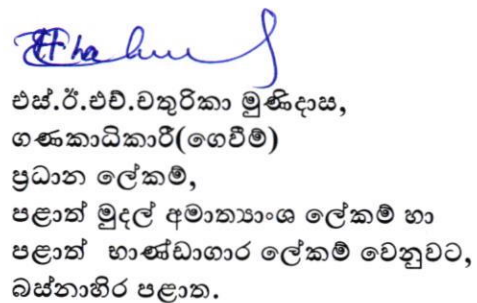 එස්.ඊ.එච්.චතුරිකා මුණිදාස,
ගණකාධිකාරී(ගෙවීම්)
ප්‍රධාන ලේකම්,
පළාත් මුදල් අමාත්‍යාංශ ලේකම් හා
පළාත් භාණ්ඩාගාර ලේකම් වෙනුවට,
බස්නාහිර පළාත.